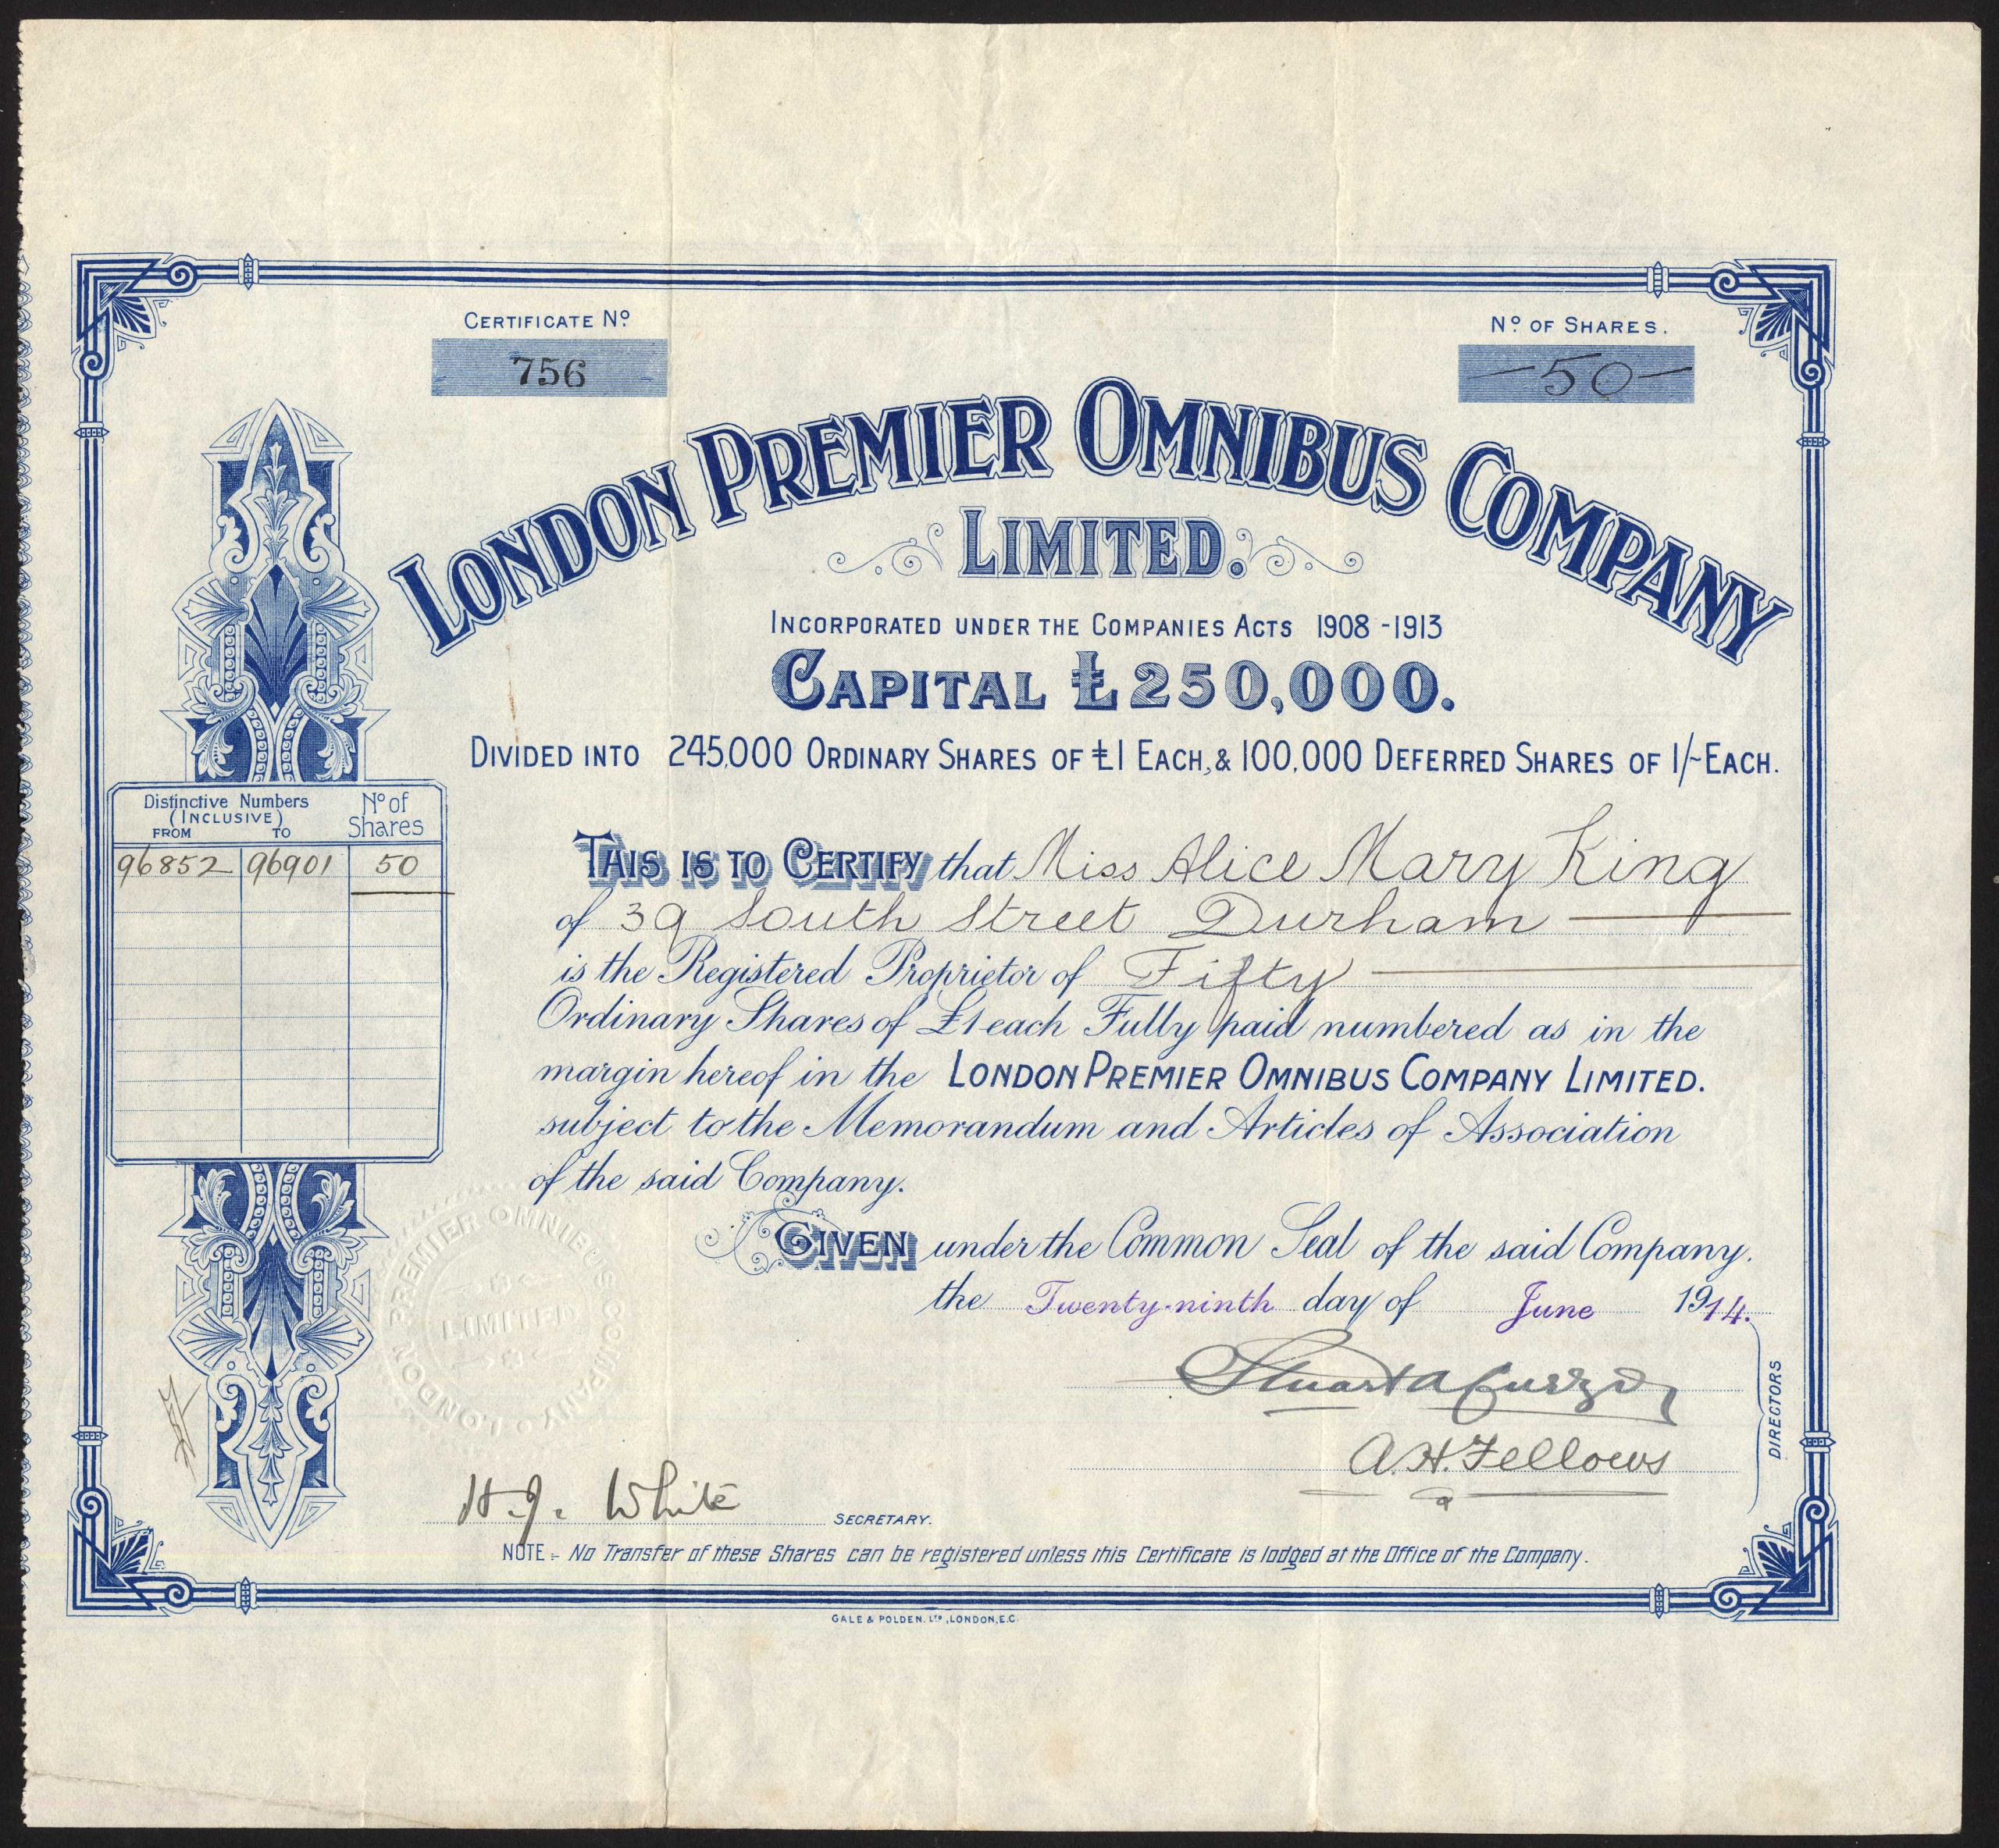 CERTIFICATE Nº
756
Nº OF SHARES.
—50—
LONDON PREMIER OMNIBUS COMPANY
LIMITED.
INCORPORATED UNDER THE COMPANIES ACTS 1908-1913
CAPITAL £250,000.
DIVIDED INTO 245,000 ORDINARY SHARES OF £1 EACH, & 100,000 DEFERRED SHARES OF 1/- EACH.
Distinctive Numbers
(INCLUSIVE)
FROM TO
Nº of
Shares
96852 96901 50
THIS IS TO CERTIFY that Miss Alice Mary King
of 39 South Street Durham
is the Registered Proprietor of Fifty
Ordinary Shares of £1 each Fully paid numbered as in the
margin hereof in the LONDON PREMIER OMNIBUS COMPANY LIMITED.
subject to the Memorandum and Articles of Association
of the said Company.
GIVEN under the Common Seal of the said Company.
the Twenty-ninth day of June 1914.
LONDON PREMIER OMNIBUS COMPANY
LIMITED
Stuart A Curzon
A.H. Fellows
DIRECTORS
H.J. White SECRETARY.
NOTE:- No Transfer of these Shares can be registered unless this Certificate is lodged at the Office of the Company.
GALE & POLDEN, LTD, LONDON, E.C.